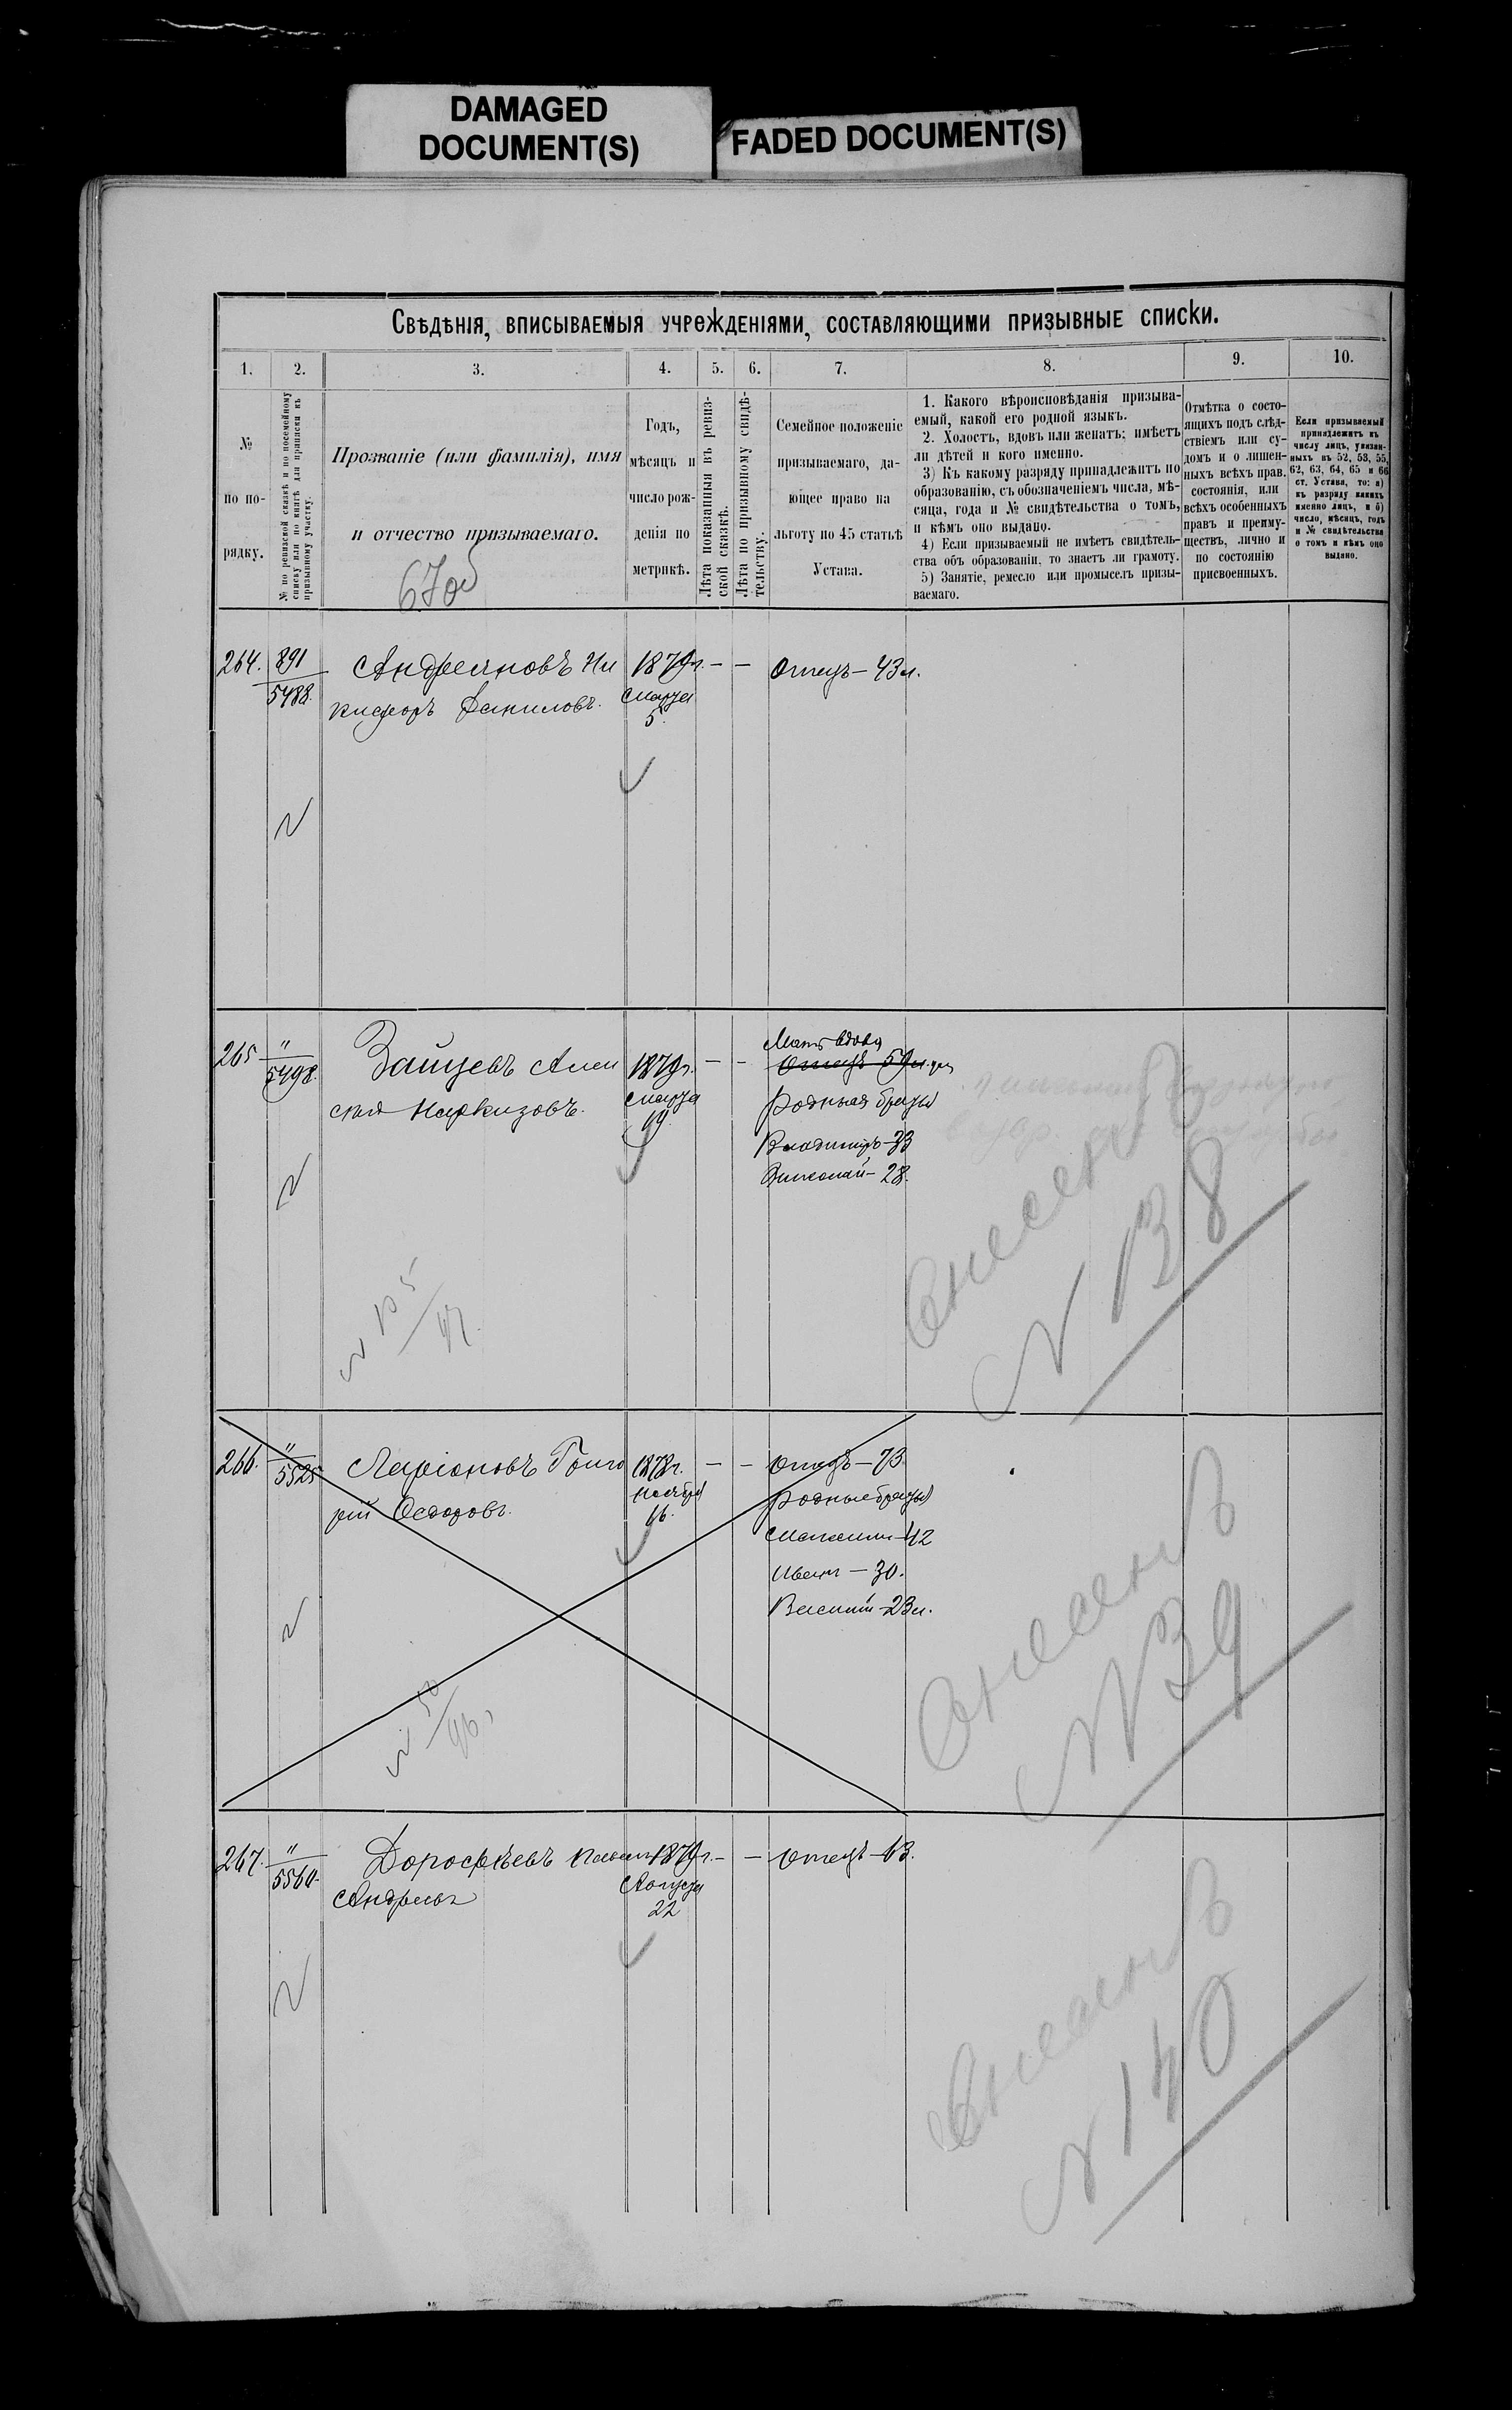 DAMAGED
DOCUMENT(S)
FADED DOCUMENT(S)
Свѣдѣнія, вписываемыя учрежденіями, составляющими призывные списки.
1. 2. 3. 4. 5. 6. 7. 8. 9. 10.
№
по по-
рядку.
№ по ревизской сказкѣ и по посемейному
списку или по книгѣ для приписки къ
призывному участку.
Прозваніе (или фамилія), имя
и отчество призываемаго.
Годъ,
мѣсяцъ и
число рож-
денія по
метрикѣ.
Лѣта показанныя въ ревиз-
ской сказкѣ.
Лѣта по призывному свидѣ-
тельству.
Семейное положеніе
призываемаго, да-
ющее право на
льготу по 45 статьѣ
Устава.
1. Какого вѣроисповѣданія призыва-
емый, какой его родной языкъ.
2. Холостъ, вдовъ или женатъ; имѣетъ
ли дѣтей и кого именно.
3) Къ какому разряду принадлежитъ по
образованію, съ обозначеніемъ числа, мѣ-
сяца, года и № свидѣтельства о томъ,
и кѣмъ оно выдано.
4) Если призываемый не имѣетъ свидѣтель-
ства объ образованіи, то знаетъ ли грамоту.
5) Занятіе, ремесло или промыселъ призы-
ваемаго.
Отмѣтка о состо-
ящихъ подъ слѣд-
ствіемъ или су-
домъ и о лишен-
ныхъ всѣхъ прав.
состоянія, или
всѣхъ особенныхъ
правъ и преиму-
ществъ, лично и
по состоянію
присвоенныхъ.
Если призываемый
принадлежитъ къ
числу лицъ, указан-
ныхъ въ 52, 53, 55,
62, 63, 64, 65 и 66
ст. Устава, то: а)
къ разряду какихъ
именно лицъ, и б)
число, мѣсяцъ, годъ
и № свидѣтельства
о томъ и кѣмъ оно
выдано.
264. 891 Андреяновъ Ни 1879г. – – Отецъ – 43 л.
5488. кифоръ Даниловъ. Марта
5.
Мать вдова
265 " Зайцевъ Алек 1879г. – – Отецъ 59 л.
5498. сѣй Наркизовъ. Марта родные братья
19
Владиміръ – 33
Николай – 28.
Внесенъ
№ 138
266. " Ларіоновъ Григо 1878г. – – Отецъ – 73.
5525 рій Ѳедоровъ. Ноября родные братья
16. Максимъ – 42
Иванъ – 30.
Василій – 23 л.
Внесенъ
№ 139
267. " Дороѳѣевъ Павелъ 1879г. – – Отецъ – 63.
5560. Андреевъ Августа
22
Внесенъ
№ 140